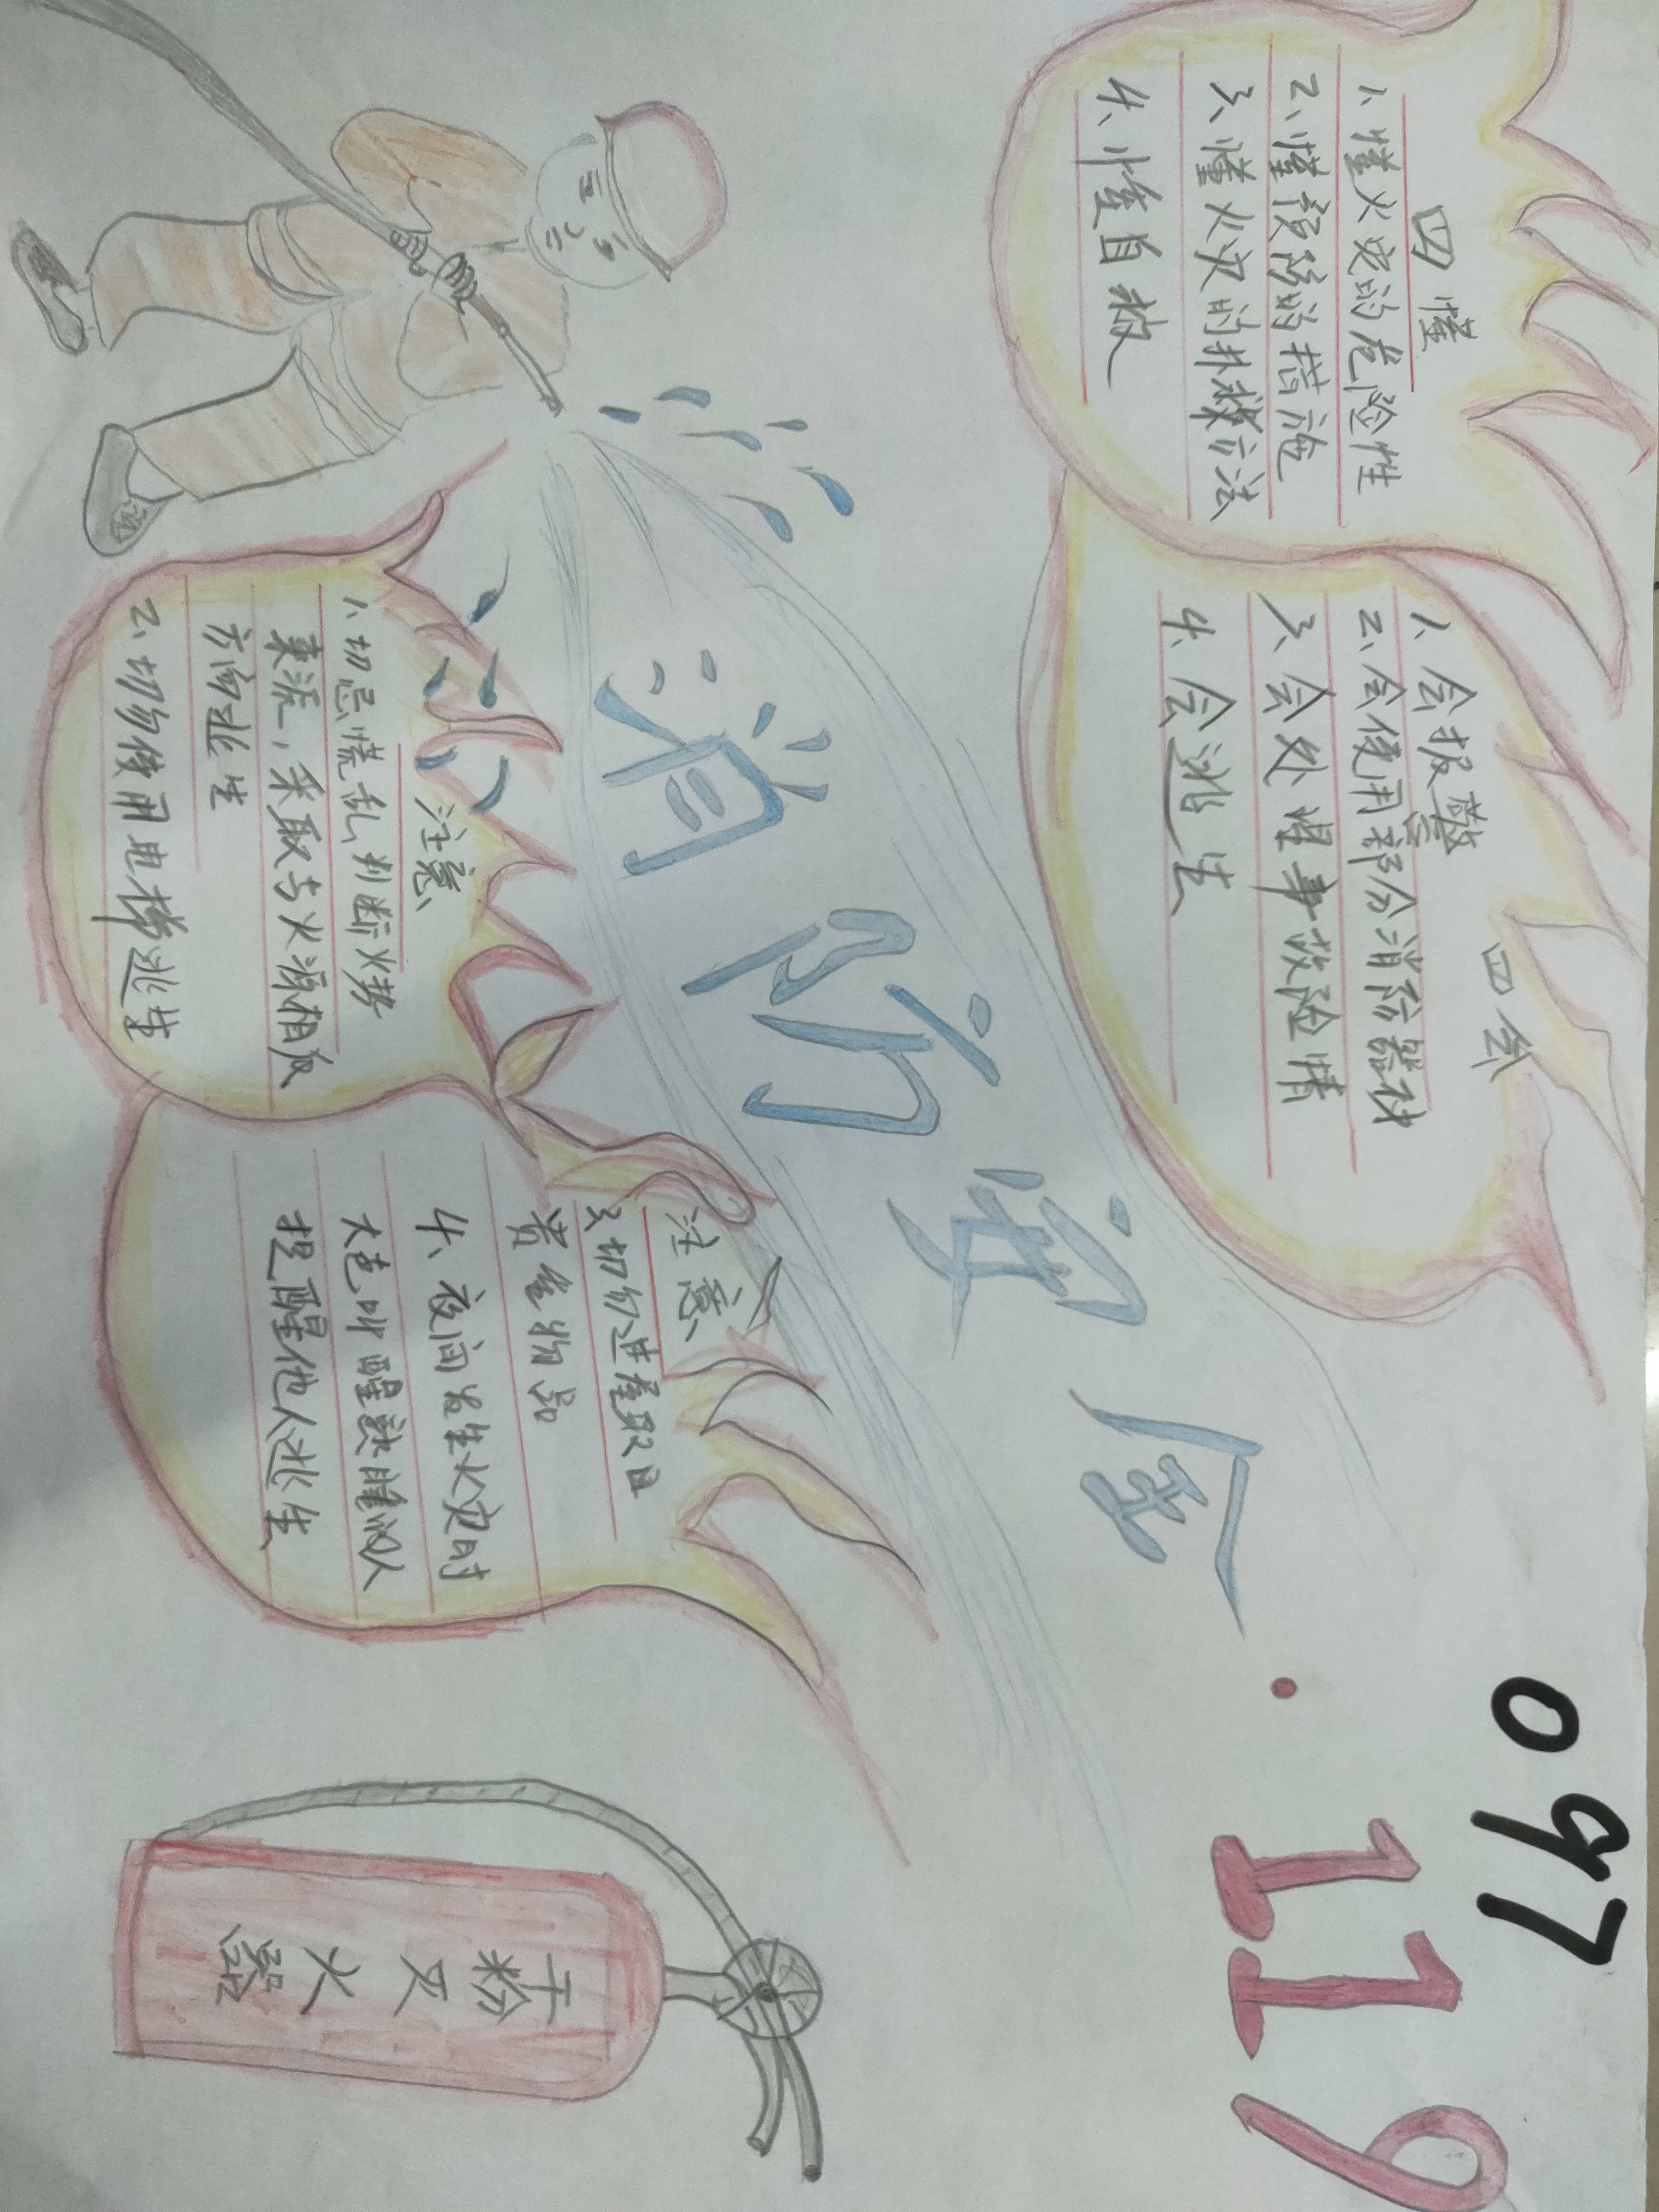 四懂
1、懂火灾的危险性
2、懂预防的措施
3、懂火灾时扑救方法
4、懂自救
四会
1、会报警
2、会使用部分消防器材
3、会处理事故险情
4、会逃生
097
消防安全·119
注意
1、切忌慌乱,判断火势
来派,采取与火源相反
方向逃生
2、切勿使用电梯逃生
注意
3、切勿进屋取回
贵重物品
4、夜间发生火灾时
大声叫醒熟睡的人
提醒他人逃生
干
粉
灭
火
器